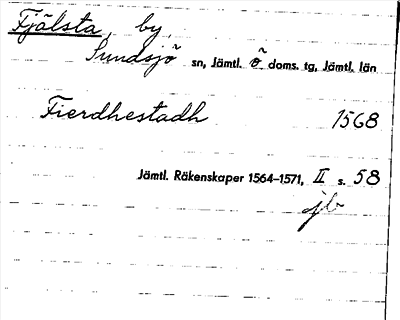 Fjälsta, by,
Sundsjö sn, Jämtl. ö doms. tg, Jämtl. län
Fierdhestadh 1568
Jämtl. Räkenskaper 1564–1571, II s. 58
jb